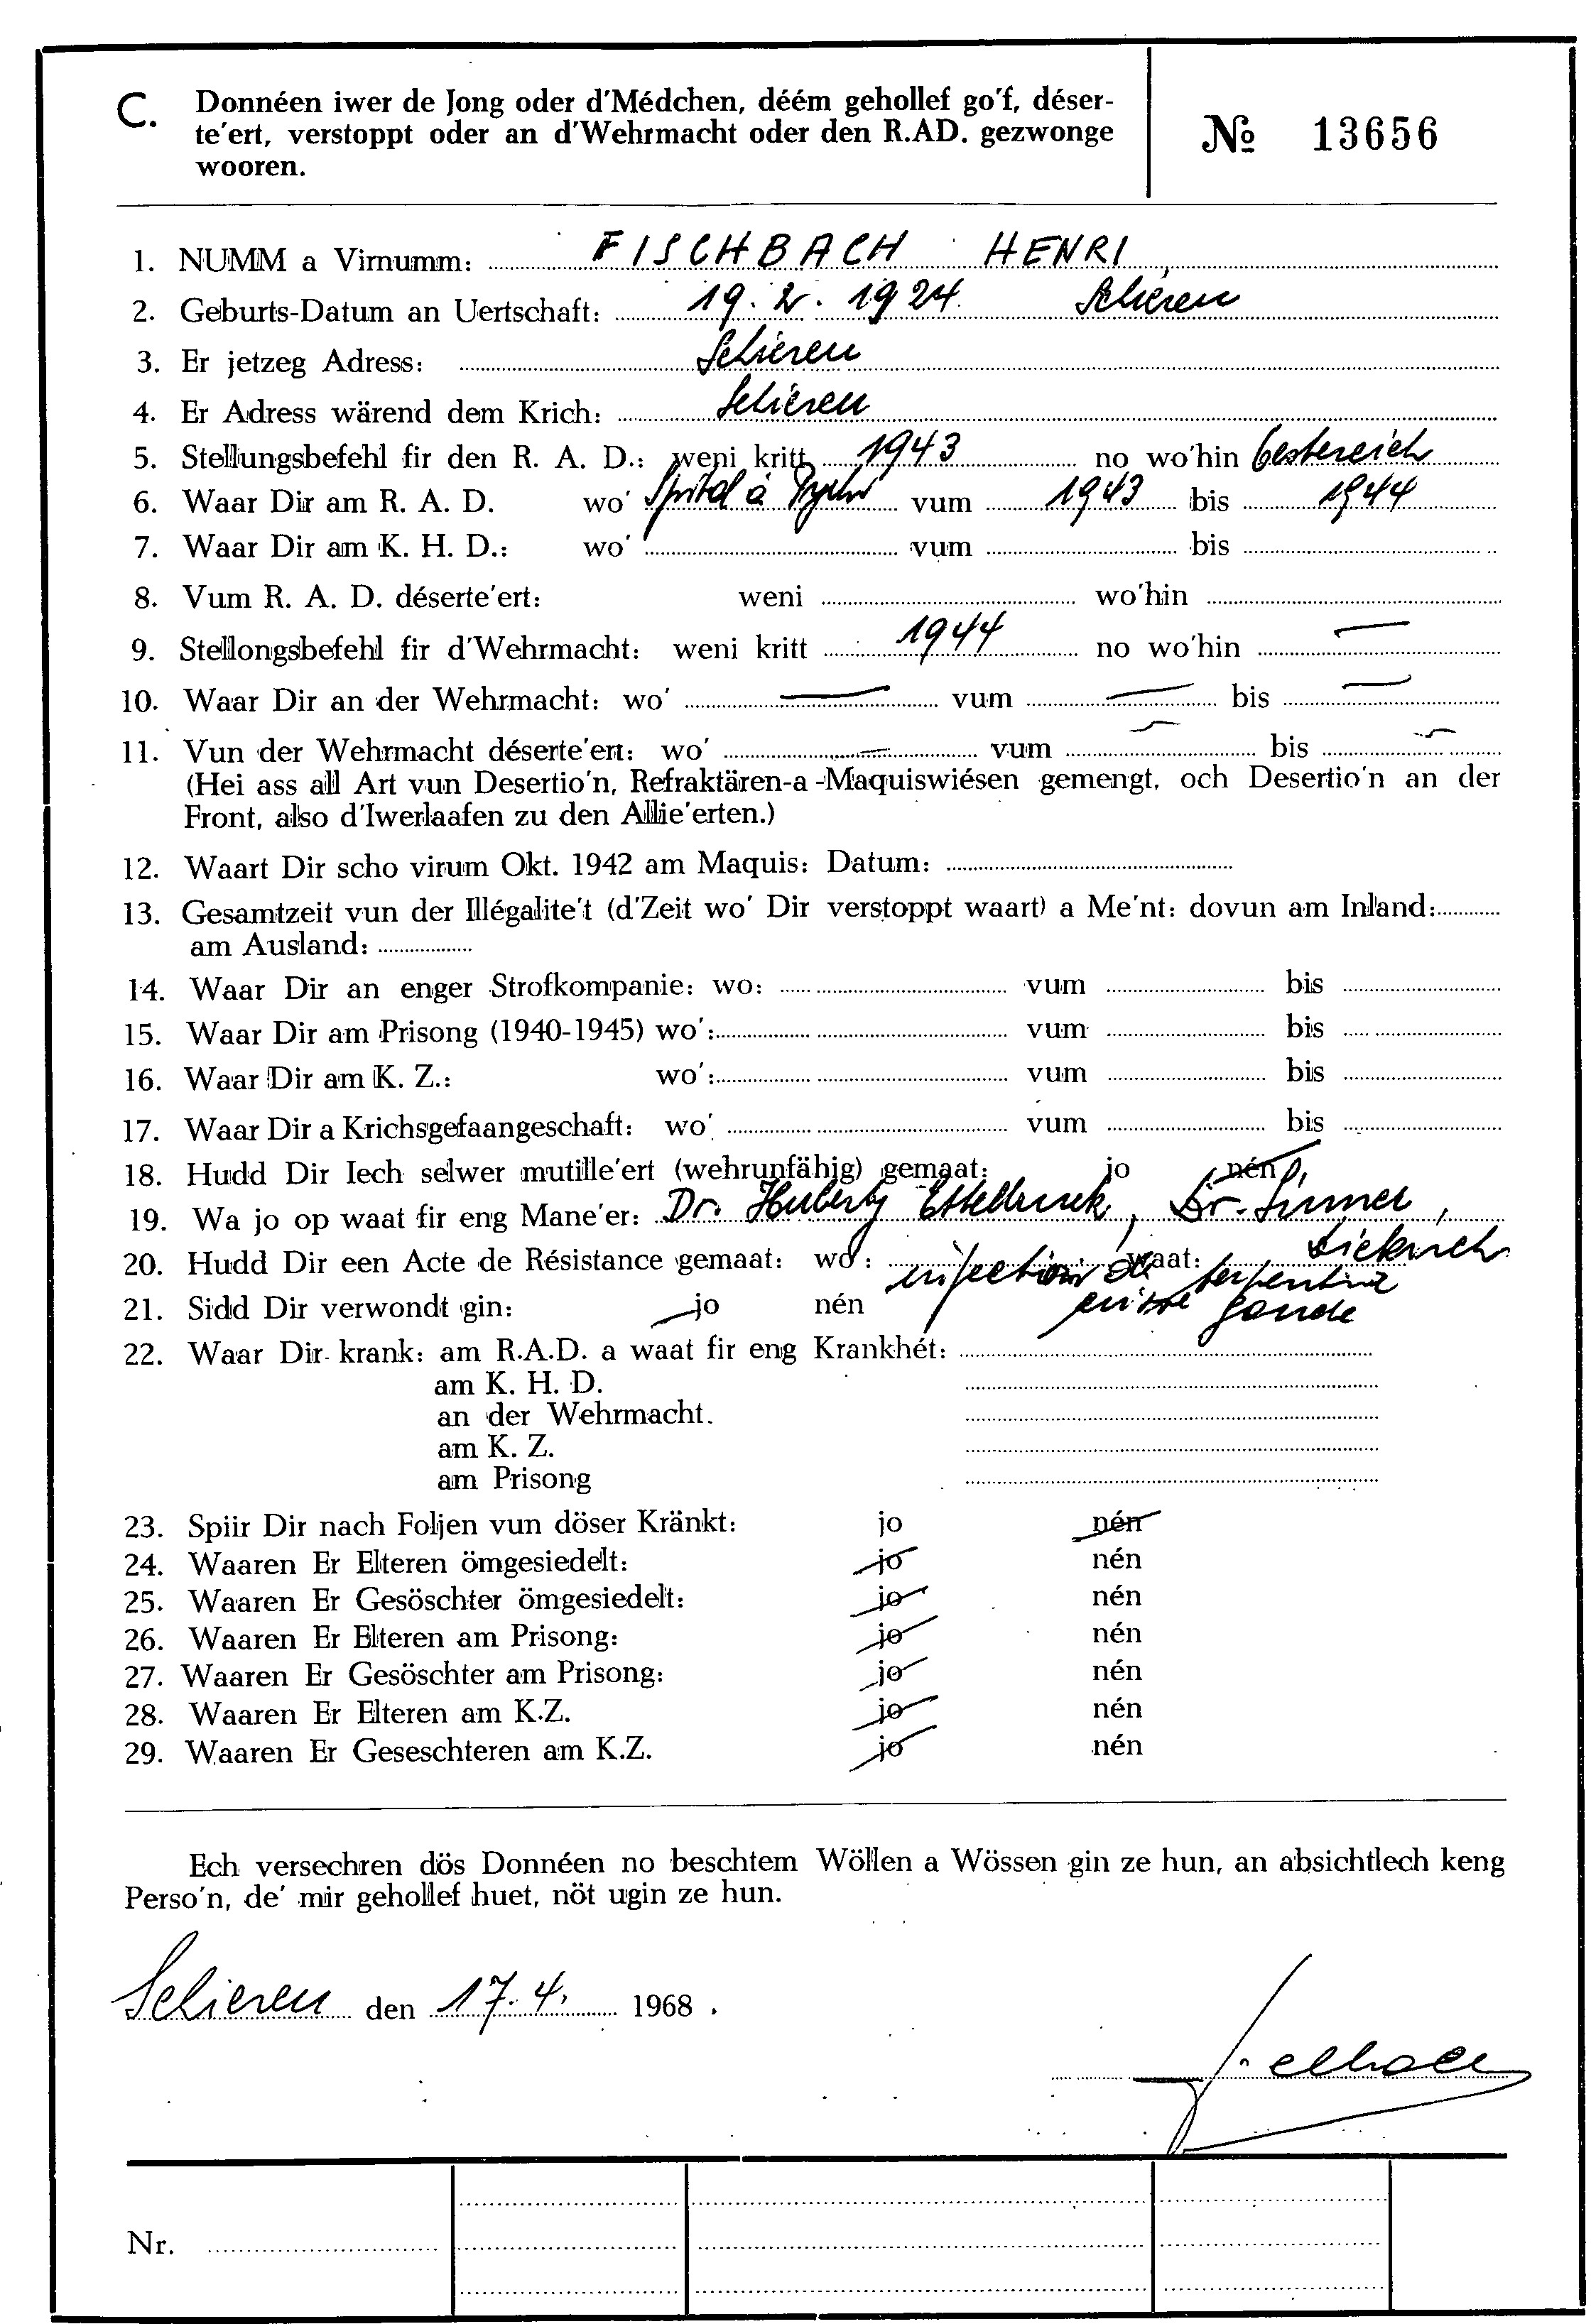 C. Donnéen iwer de Jong oder d'Médchen, déém gehollef go'f, déser-
te'ert, verstoppt oder an d'Wehrmacht oder den R.AD. gezwonge
wooren.
№ 13656
1. NUMM a Virnumm: FISCHBACH HENRI
2. Geburts-Datum an Uertschaft: 19. 2. 1924 Schieren
3. Er jetzeg Adress: Schieren
4. Er Adress wärend dem Krich: Schieren
5. Stellungsbefehl fir den R. A. D.: weni kritt 1943 no wo'hin Oestereich
6. Waar Dir am R. A. D. wo' Spital a vum 1943 bis 1944
7. Waar Dir am K. H. D.: wo' vum bis
8. Vum R. A. D. déserte'ert: weni wo'hin
9. Stellongsbefehl fir d'Wehrmacht: weni kritt 1944 no wo'hin —
10. Waar Dir an der Wehrmacht: wo' — vum — bis —
11. Vun der Wehrmacht déserte'ert: wo' — vum — bis —
(Hei ass all Art vun Desertio'n, Refraktären-a -Maquiswiésen gemengt, och Desertio'n an der
Front, also d'Iwerlaafen zu den Allie'erten.)
12. Waart Dir scho virum Okt. 1942 am Maquis: Datum:
13. Gesamtzeit vun der Illégalite't (d'Zeit wo' Dir verstoppt waart) a Me'nt: dovun am Inland:
am Ausland:
14. Waar Dir an enger Strofkompanie: wo: vum bis
15. Waar Dir am Prisong (1940-1945) wo': vum bis
16. Waar Dir am K. Z.: wo': vum bis
17. Waar Dir a Krichsgefaangeschaft: wo' vum bis
18. Hudd Dir Iech selwer mutille'ert (wehrunfähig) gemaat: jo nén
19. Wa jo op waat fir eng Mane'er: Dr. Huberty Ettelbruck, Dr. ,
Diekirch
20. Hudd Dir een Acte de Résistance gemaat: wo: waat:
injection de terpentine
21. Sidd Dir verwondt gin: jo nén
cuisse gauche
22. Waar Dir krank: am R.A.D. a waat fir eng Krankhét:
am K. H. D.
an der Wehrmacht.
am K. Z.
am Prisong
23. Spiir Dir nach Foljen vun döser Kränkt: jo nén
24. Waaren Er Elteren ömgesiedelt: jo nén
25. Waaren Er Gesöschter ömgesiedelt: jo nén
26. Waaren Er Elteren am Prisong: jo nén
27. Waaren Er Gesöschter am Prisong: jo nén
28. Waaren Er Elteren am K.Z. jo nén
29. Waaren Er Geseschteren am K.Z. jo nén
Ech versechren dös Donnéen no beschtem Wöllen a Wössen gin ze hun, an absichtlech keng
Perso'n, de' mir gehollef huet, nöt ugin ze hun.
Schieren den 17. 4. 1968.
Nr.